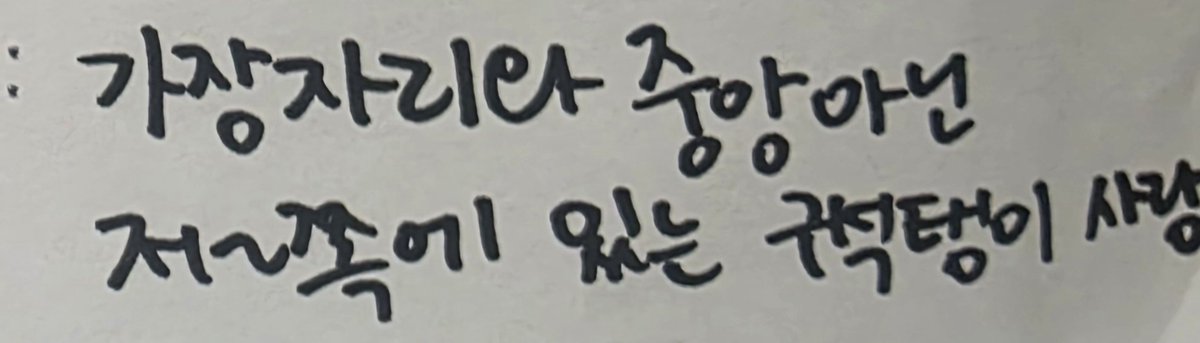 : 가장자리와 중앙 아닌
저~쪽에 있는 귀퉁이 사랑